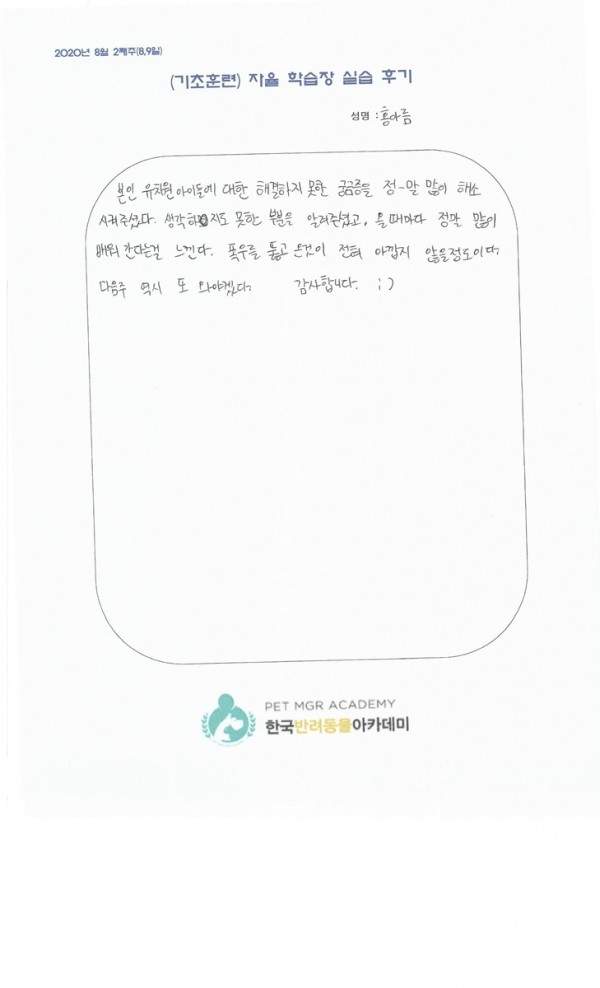 2020년 8월 2째주(8,9일)
(기초훈련) 자율 학습장 실습 후기
성명 : 홍아름
본인 유치원 아이들에 대한 해결하지 못한 궁금증을 정-말 많이 해소
시켜주셨다. 생각하지도 못한 부분을 알려주셨고, 올때마다 정말 많이
배워 간다는걸 느낀다. 폭우를 뚫고 온것이 전혀 아깝지 않을정도이다.
다음주 역시 또 와야겠다. 감사합니다. ; )
PET MGR ACADEMY
한국반려동물아카데미